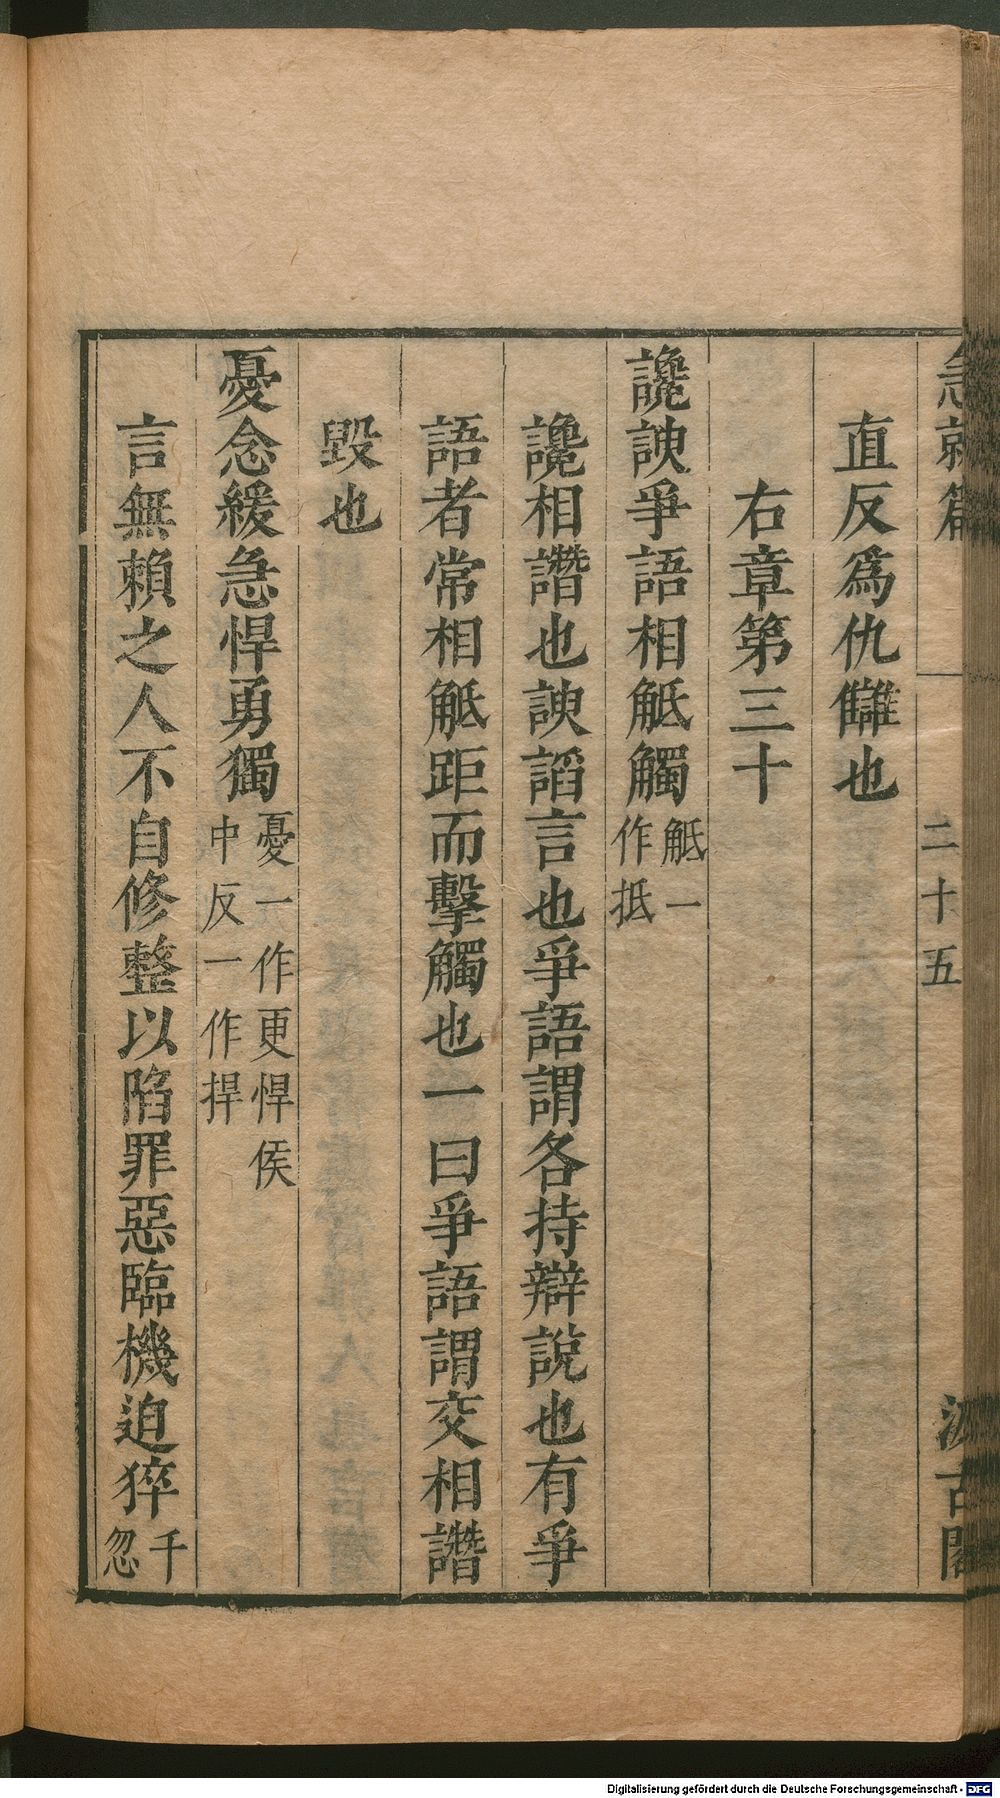 急就篇 二十五 汲古閣
直反爲仇讎也
右章第三十
讒諛爭語相觝觸觝一作抵
讒相譖也諛謟言也爭語謂各持辯說也有爭
語者常相觝距而擊觸也一曰爭語謂交相譖
毀也
憂念緩急悍勇獨憂一作更悍侯中反一作捍
言無賴之人不自修整以陷罪惡臨機迫猝千忽
Digitalisierung gefördert durch die Deutsche Forschungsgemeinschaft - DFG